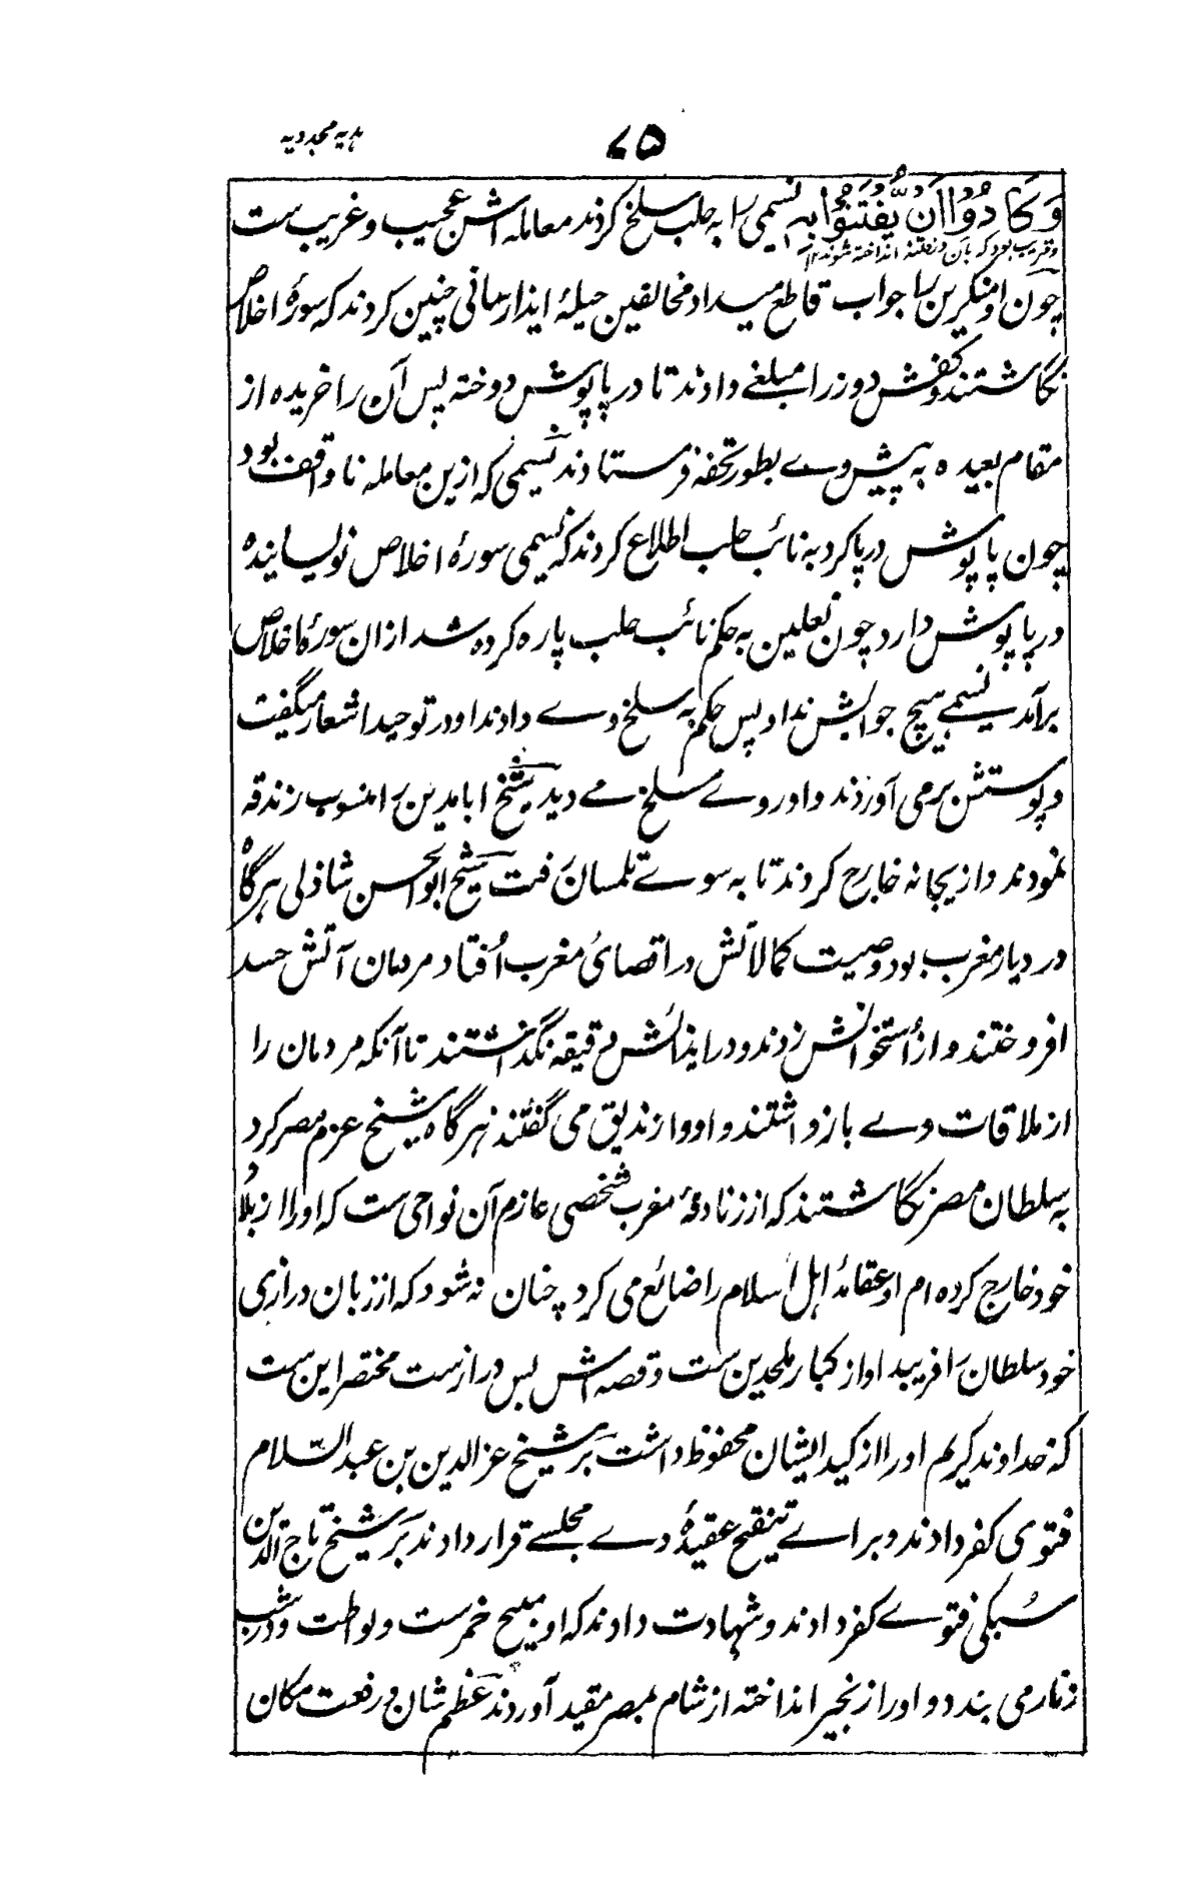 ۷۵
ہدیہ مجددیہ
وَكَادُوْا اَنْ يُّفْتَنُوْا بِهٖ نسیمی را به حلب سلخ کردند معامله اش عجیب و غریب ست
و قریب بود که بآن در فتنه انداخته شوند ۱۲
چون او منکرین را جواب قاطع میداد مخالفین حیلۂ ایذا رسانی چنین کردند که سورۂ اخلاص
نگاشتند و کفش دوز را مبلغے دادند تا در پاپوش دوخته پس آن را خریده از
مقام بعیده به پیش وے بطور تحفه فرستادند نسیمی که ازین معامله ناواقف بود
چون پاپوش در پا کرد به نائب حلب اطلاع کردند که نسیمی سورۂ اخلاص نویسانیده
در پاپوش دارد چون نعلین به حکم نائب حلب پاره کرده شد ازان سورۂ اخلاص
برآمد نسیمے ہیچ جوابش نداد پس حکم به سلخ وے دادند او در توحید اشعار میگفت
و پوستش برمی آوردند و او روے سلخ مے دید شیخ ابامدین را منسوب زندقه
نمودند و از بجانه خارج کردند تا به سوے تلمسان رفت شیخ ابوالحسن شاذلی هرگاه
در دیار مغرب بود و صیت کمالاتش در اقصائ مغرب اُفتاد مردمان آتش حسد
افروختند و از اُستخوانش زدند و در ایذائش دقیقه نگذاشتند تا آنکه مردمان را
از ملاقات وے باز داشتند و او را زندیق می گفتند هرگاه شیخ عزم مصر کرد
به سلطان مصر نگاشتند که از زنادقۂ مغرب شخصی عازم آن نواحی ست که او را از بلاد
خود خارج کرده ام او عقائد اہل اسلام را ضائع می کرد چنان نه شود که از زبان درازی
خود سلطان را فریبد او از کبار ملحدین ست و قصه اش بس درازست مختصر این ست
که خداوند کریم او را از کید ایشان محفوظ داشت بر شیخ عزالدین بن عبدالسّلام
فتوی کفر دادند و براے تنقیح عقیدۂ وے مجلسے قرار دادند بر شیخ تاج الدین
سُبکی فتوے کفر دادند و شہادت دادند که او مبیح خمرست و لواطت و در شب
زنار می بندد و او را زنجیر انداخته از شام بمصر مقید آوردند عظم شان و رفعت مکان